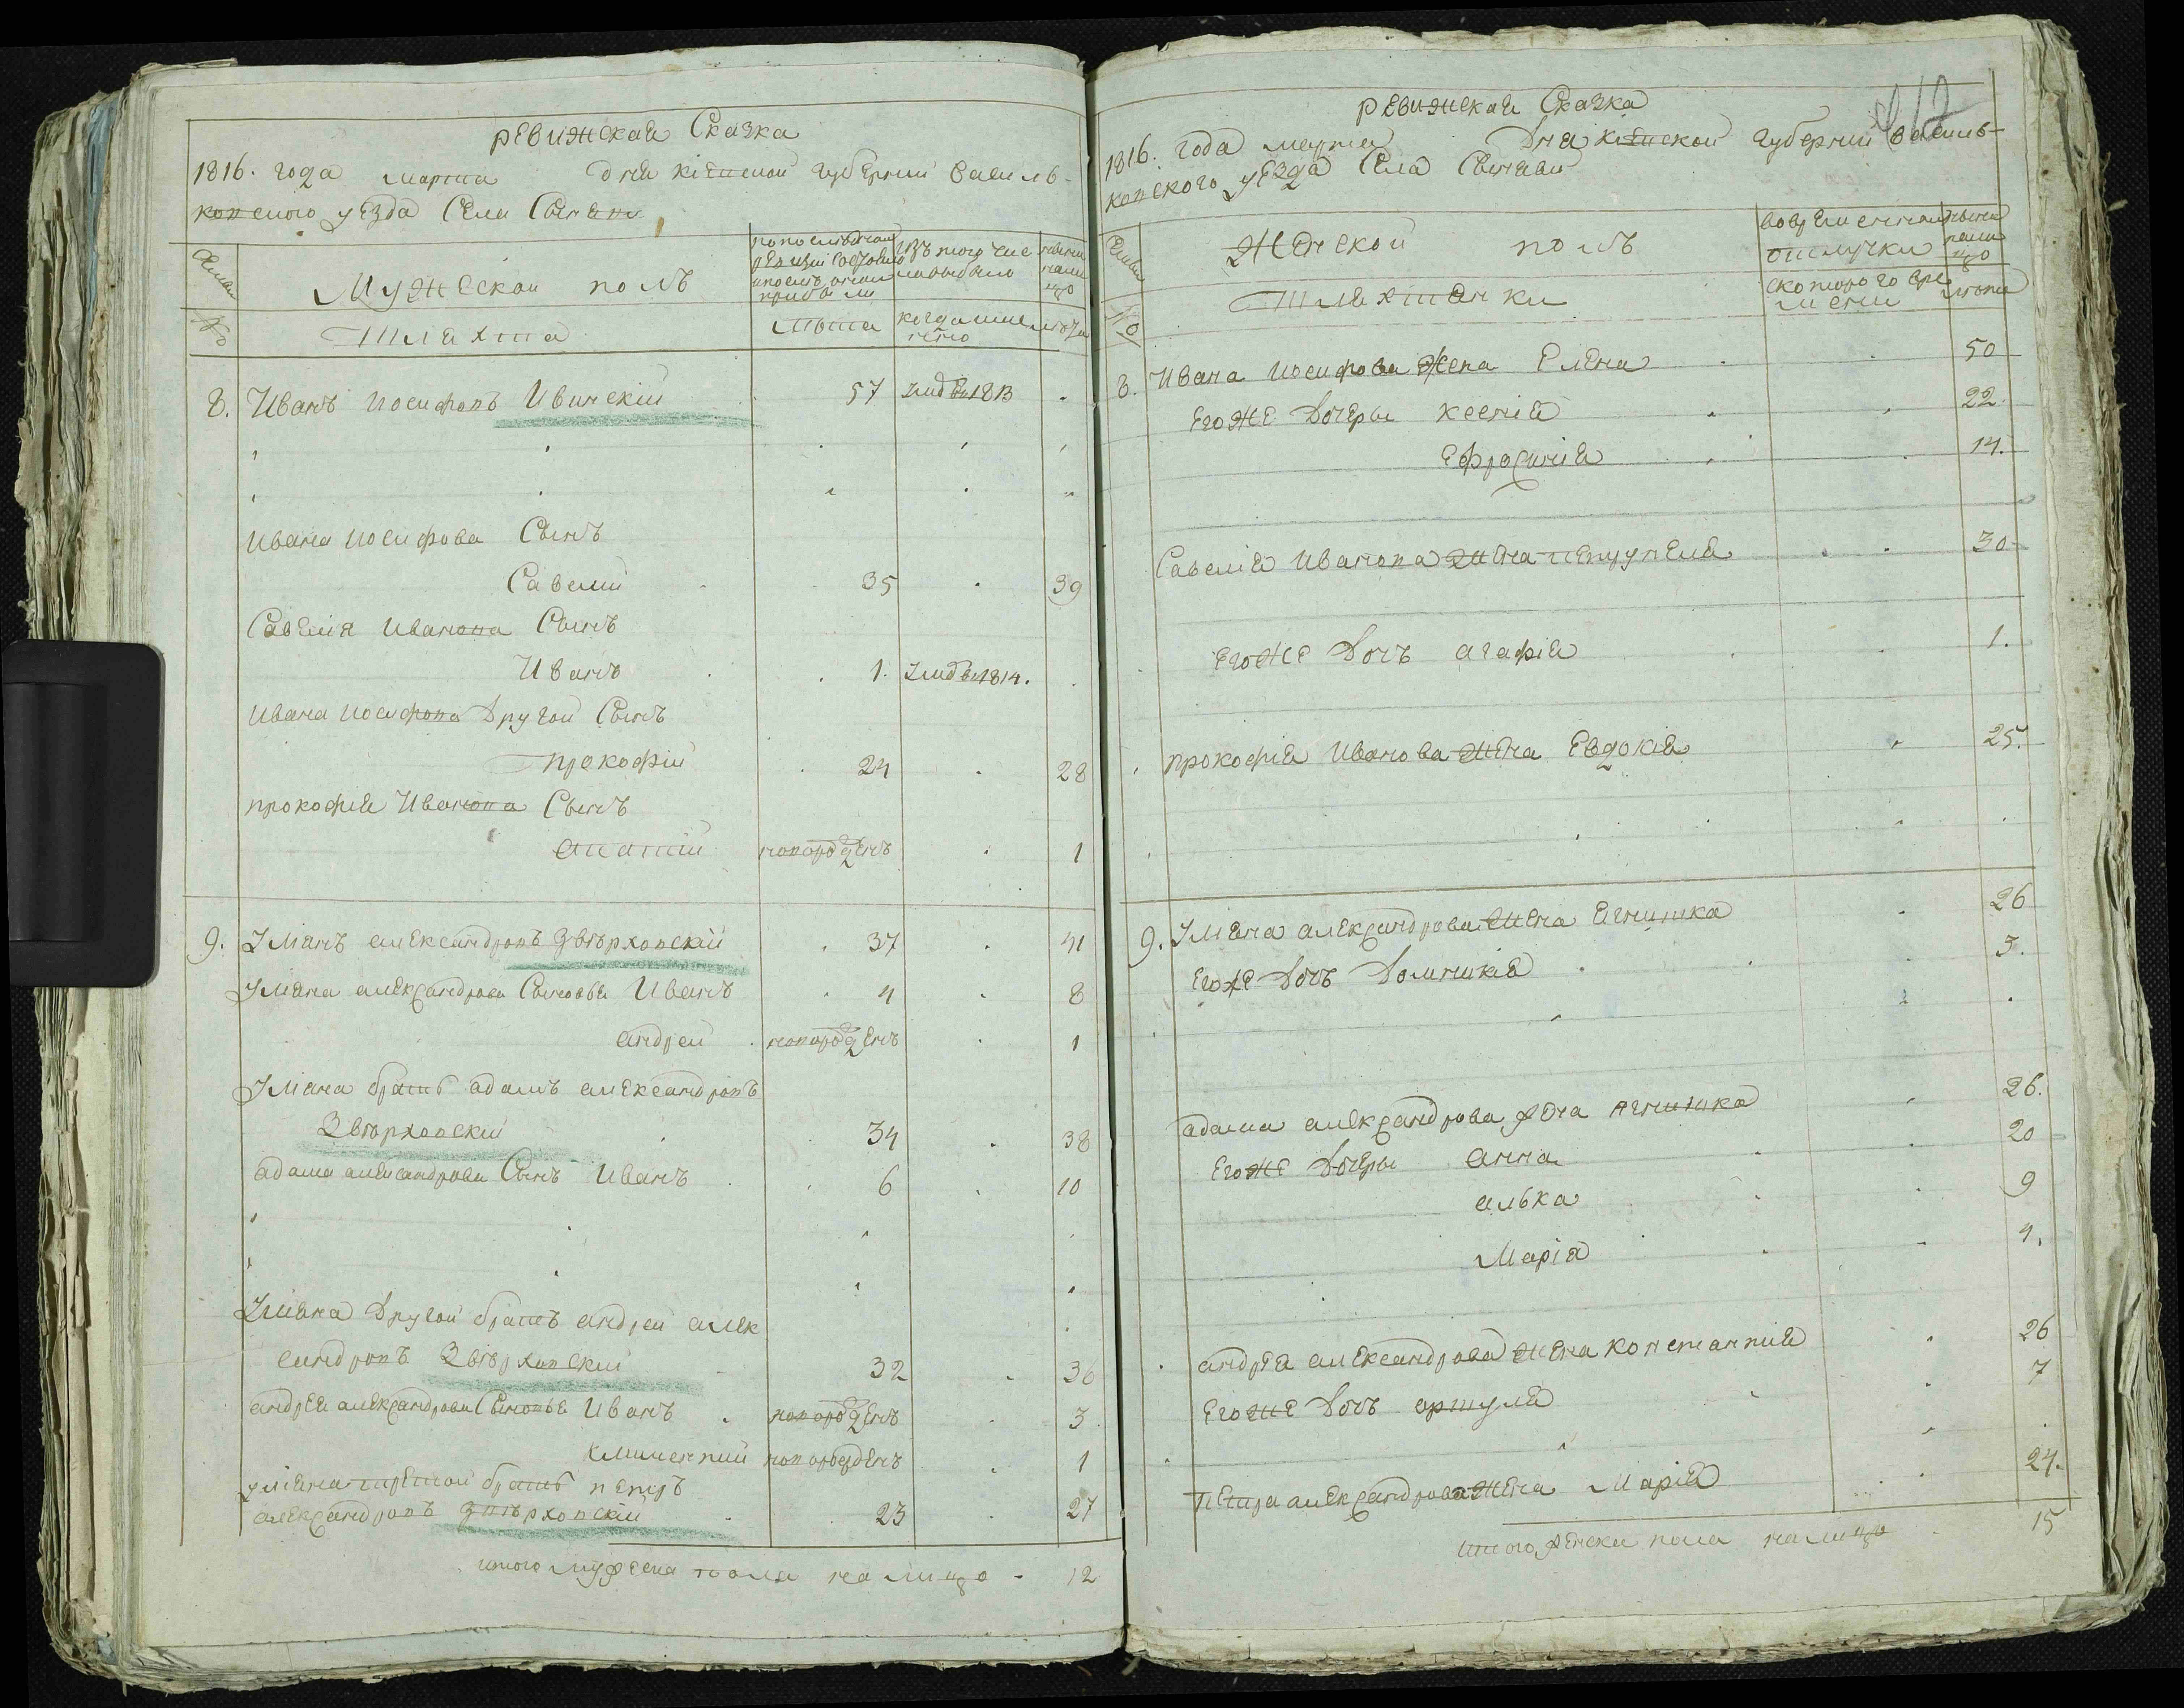 ревижская Сказка
1816. года марта дня кіевской губерніи василь-
ковского уезда Села
Семьи
Мужескои полъ
по последнеи
ревизіи состояло
и после оной
прибыли
изъ того чис
ла выбыло
ныне
нали
цо
№
Шляхта
лета
когда имен
но
лета
8. Иванъ иосифовъ Ивинскій 57 умре 1813
Ивана иосифова Сынъ
Савелий 35 39
Савелія Иванова Сынъ
Иванъ 1. умре 1814.
Ивана иосифова другои Сынъ
прокофій 24 28
прокофія Иванова Сынъ
игнатий новорожденъ 1
9. александровъ звѣрховскій 37 41
александрова Сыновья Иванъ 4 8
андреи новорожденъ 1
братъ адамъ александровъ
Звѣрховскій 34 38
адама александрова Сынъ Иванъ 6 10
другои братъ андреи алек
сандровъ Звѣрховскій 32 36
андрея александрова Сыновья Иванъ новорожденъ 3
климентий новорожденъ 1
третои братъ петръ
александровъ звѣрховскій 23 27
итого мужеска пола на лицо - 12
ревижская Сказка
1816. года марта дня кіевской губерніи василь-
ковского уезда Села
Семьи
Женскои полъ
во временнои
отлучки
ныне
нали
цо
№
Шляхтянки
с которого вре
мени
лета
8. Ивана иосифова жена Елена 50
его же дочеры ксенія 22.
Ефросинія 14.
Савелія Иванова жена 30
его же дочъ агафія 1.
прокофія Иванова жена Евдокія 25.
9. александрова жена 26
его же дочъ доминикія 3.
адама александрова жена агнишка 26.
его же дочеры анна 20
9
Марія 4.
андрея александрова жена констанція 26
его же дочъ 7
петра александрова жена Марія 24.
итого женска пола на лицо 15